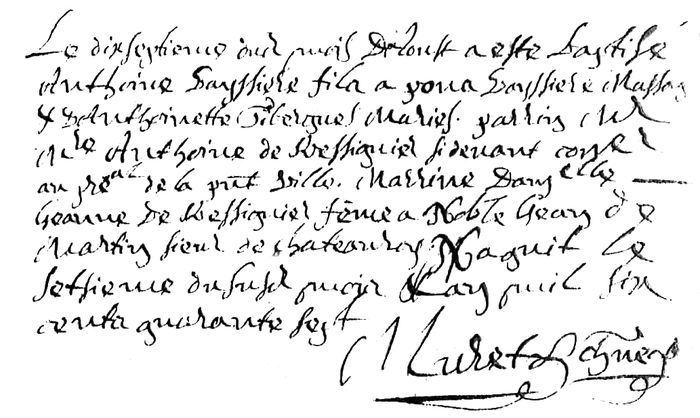 Le dixseptieme dud mois Daoust a este Baptisé
Anthoine Bayssiere filz a pons Bayssiere Masson
& d'Anthoinette Gibergues Maries. parrin
Mre Anthoine de Vessiguier sidevant conser
au prñt Ville. Marrine Damelle
Jeanne De Vessiguier feme a Noble Jean de
Martin sieur de Naquit le
setsieme dususd mois Lan mil six
cents quarante sept